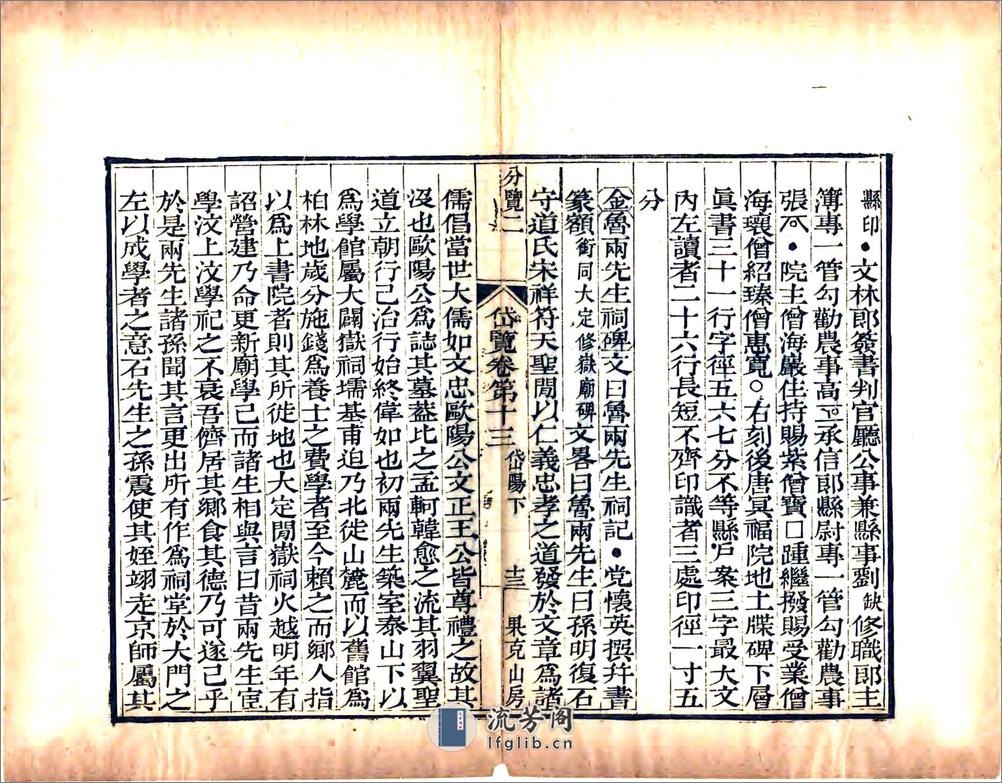 縣印・文林郎簽書判官廳公事兼縣事劉缺修職郎主
簿專一管勾勸農事高・承信郎縣尉專一管勾勸農事
張・院主僧海巖住持賜紫僧寶口踵繼撥賜受業僧
海瓌僧紹臻僧惠寬○右刻後唐冥福院地土牒碑下層
眞書三十一行字徑五六七分不等縣戸案三字最大文
內左讀者二十六行長短不齊印識者三處印徑一寸五
分
金魯兩先生祠碑文曰魯兩先生祠記・党懷英撰幷書
篆額銜同大定修嶽廟碑文畧曰魯兩先生曰孫明復石
守道氏宋祥符天聖閒以仁義忠孝之道發於文章爲諸
分覽二
岱覽卷第十三 岱陽下 十三 果克山房
儒倡當世大儒如文忠歐陽公文正王公皆尊禮之故其
沒也歐陽公爲誌其墓葢比之孟軻韓愈之流其羽翼聖
道立朝行己治行始終偉如也初兩先生築室泰山下以
爲學館屬大闢嶽祠壖基甫迫乃北徙山麓而以舊館爲
柏林地歲分施錢爲養士之費學者至今賴之而鄉人指
以爲上書院者則其所徙地也大定閒嶽祠火越明年有
詔營建乃命更新廟學已而諸生相與言曰昔兩先生宦
學汶上汶學祀之不衰吾儕居其鄉食其德乃可遂已乎
於是兩先生諸孫聞其言更出所有作爲祠堂於大門之
左以成學者之意石先生之孫震使其姪翊走京師屬其
流芳阁
lfglib.cn